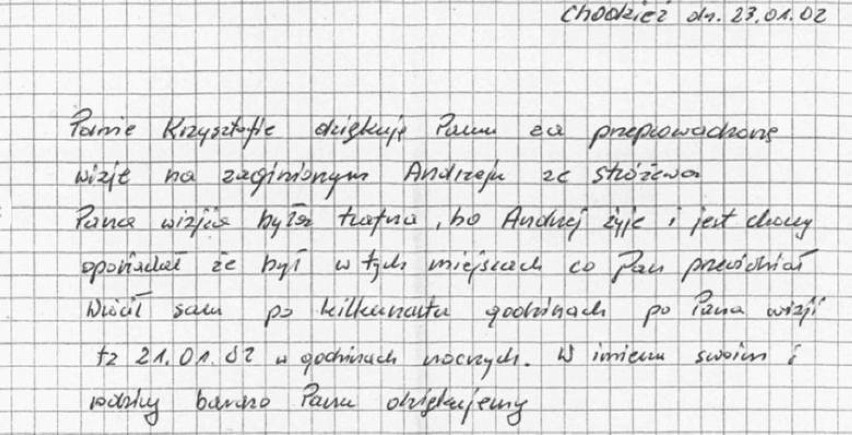 Chodzież dn. 23.01.02
Panie Krzysztofie dziękuję Panu za przeprowadzoną
wizję na zaginionym Andrzeju ze Stróżewa
Pana wizja była trafna, bo Andrzej żyje i jest chory
opowiadał że był w tych miejscach co Pan przewidział
Wrócił sam po kilkunastu godzinach po Pana wizji
tz 21.01.02 w godzinach nocnych. W imieniu swoim i
rodziny bardzo Panu dziękujemy